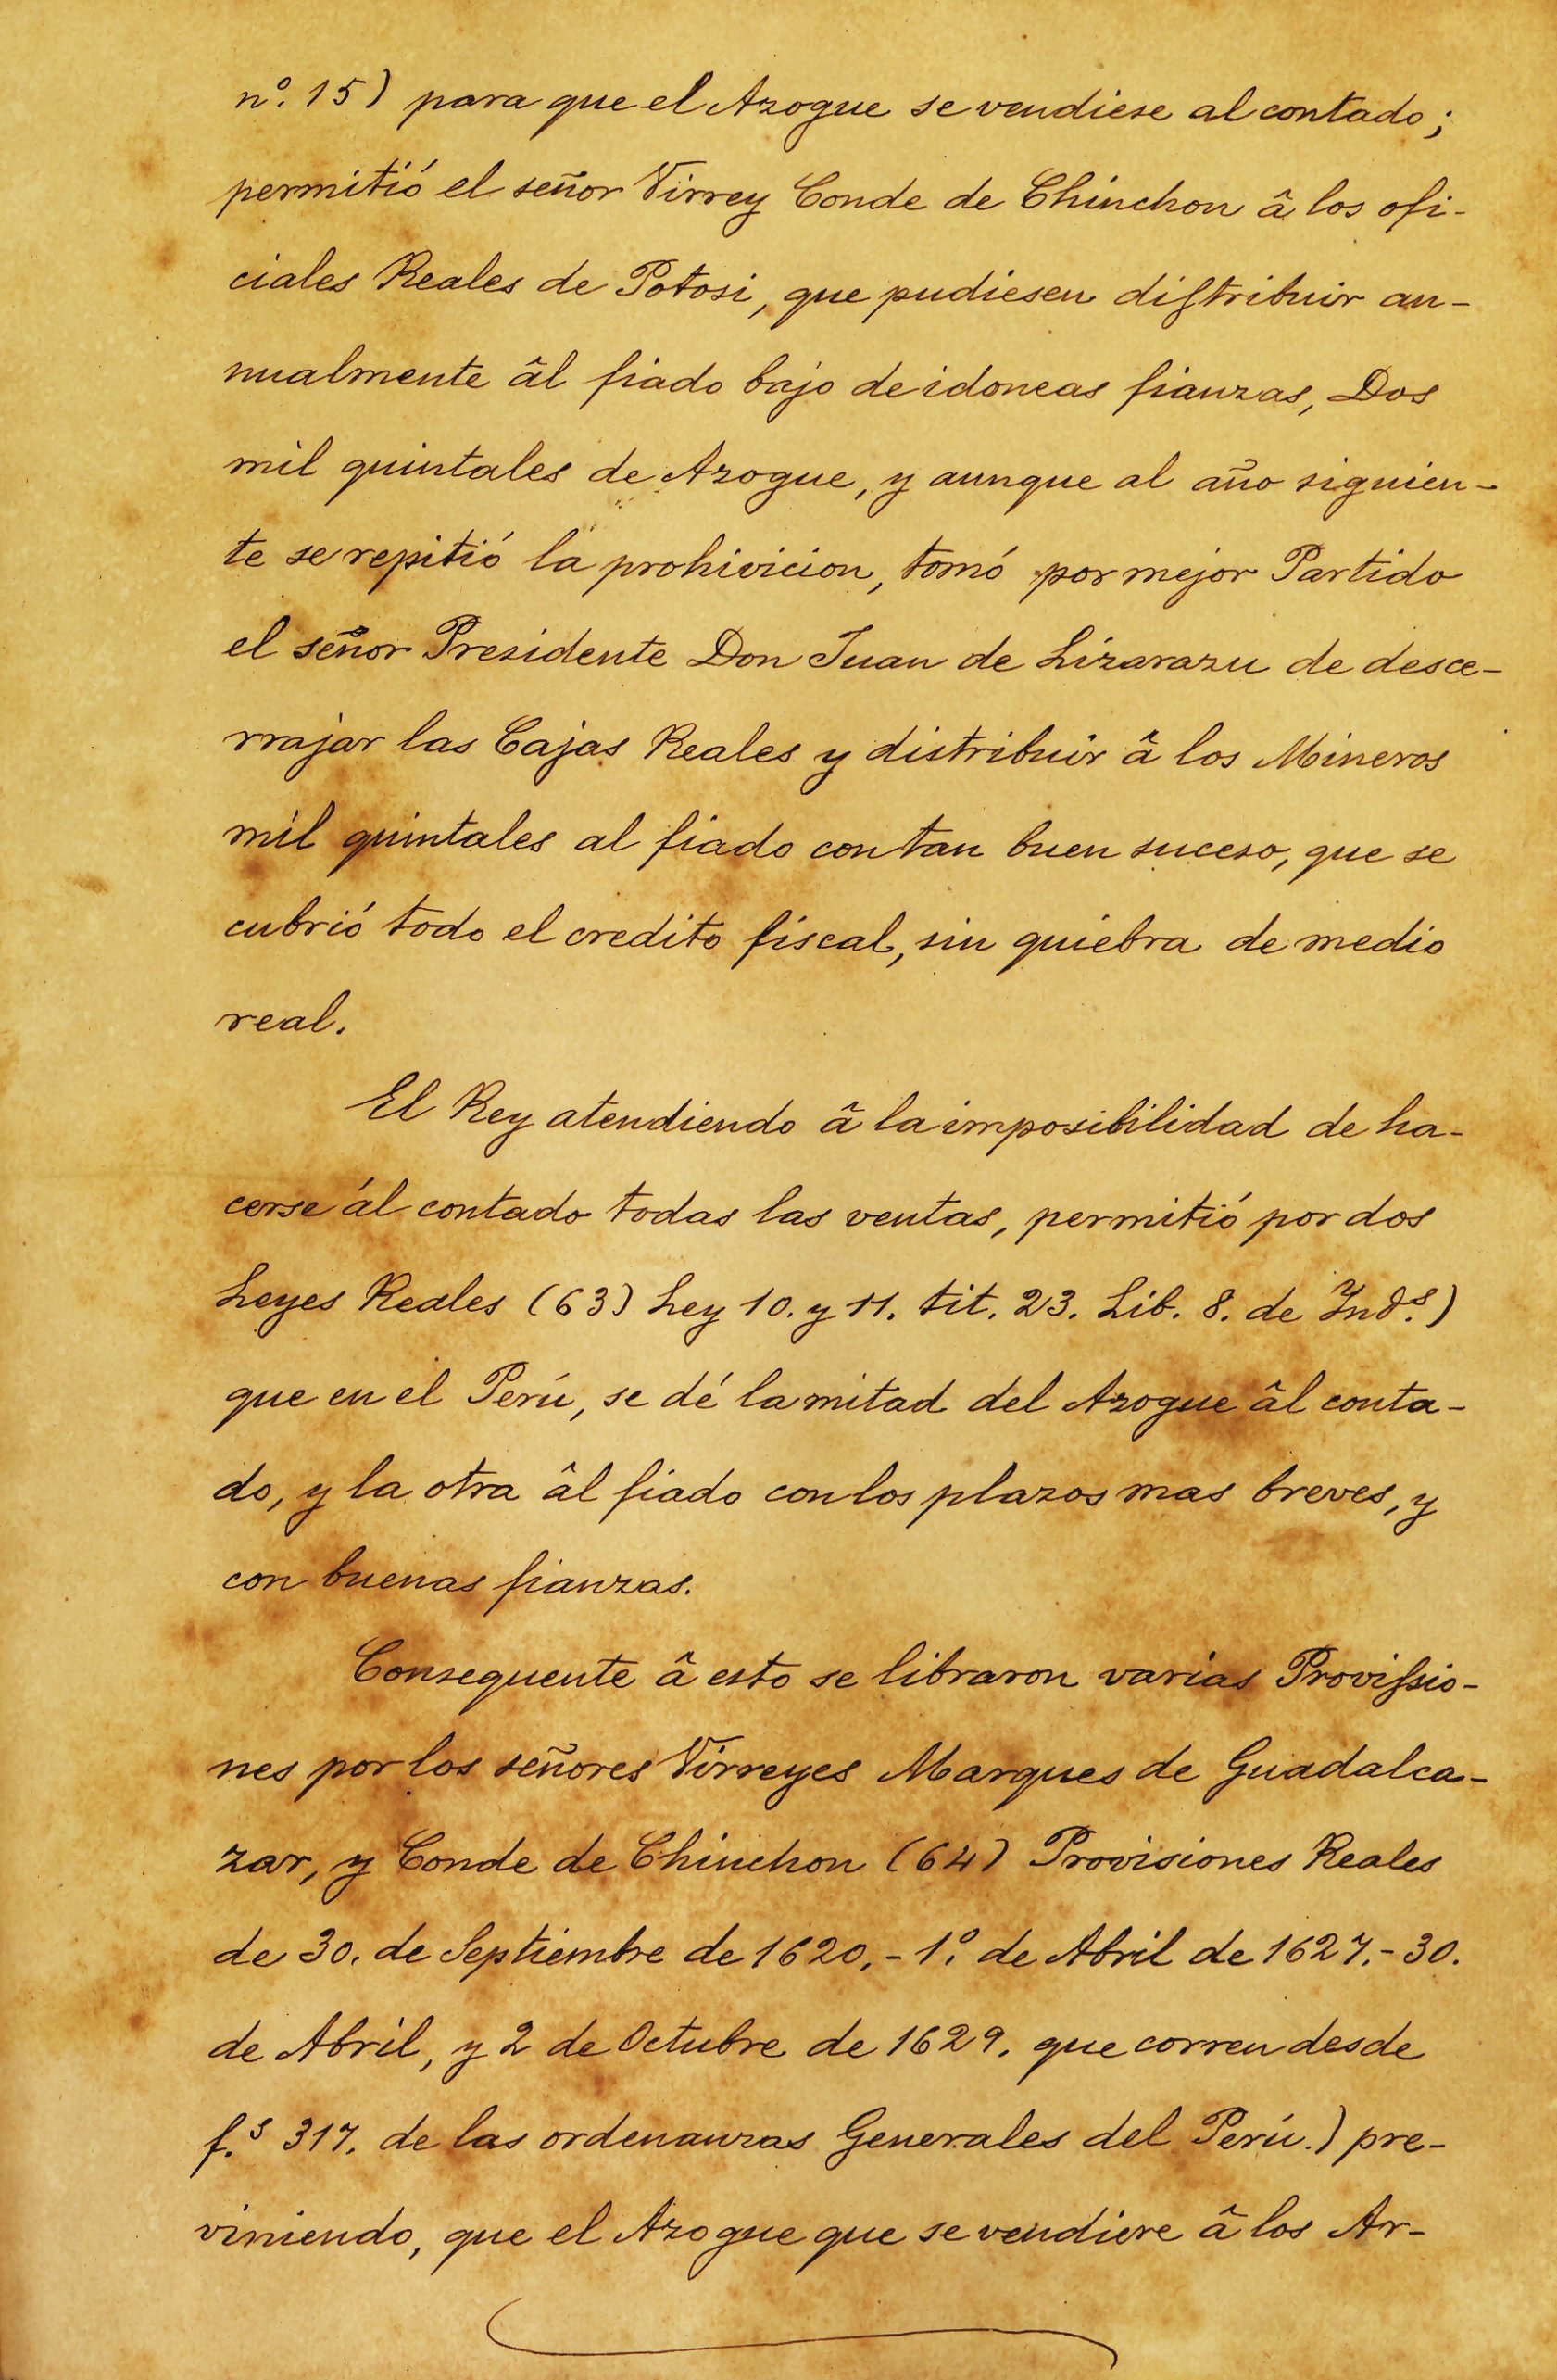 nº. 15) para que el Azogue se vendiese al contado;
permitió el señor Virrey Conde de Chinchon â los ofi-
ciales Reales de Potosi, que pudiesen diſtribuir an-
nualmente âl fiado bajo de idoneas fianzas, Dos
mil quintales de Azogue, y aunque al año siguien-
te se repitió la prohivicion, tomó por mejor Partido
el señor Presidente Don Juan de Lizarazu de desce-
rrajar las Cajas Reales y distribuir â los Mineros
mil quintales al fiado con tan buen suceso, que se
cubrió todo el credito fiscal, sin quiebra de medio
real.
El Rey atendiendo â la imposibilidad de ha-
cerse ál contado todas las ventas, permitió por dos
Leyes Reales (63) Ley 10. y 11. tit. 23. Lib. 8. de Indˢ.)
que en el Perú, se dé la mitad del Azogue âl conta-
do, y la otra âl fiado con los plazos mas breves, y
con buenas fianzas.
Consequente â esto se libraron varias Proviſsio-
nes por los señores Virreyes Marques de Guadalca-
zar, y Conde de Chinchon (64) Provisiones Reales
de 30. de Septiembre de 1620.- 1º. de Abril de 1627.- 30.
de Abril, y 2 de Octubre de 1629. que corren desde
f.ˢ 317. de las ordenanzas Generales del Perú.) pre-
viniendo, que el Azogue que se vendiere â los Ar-